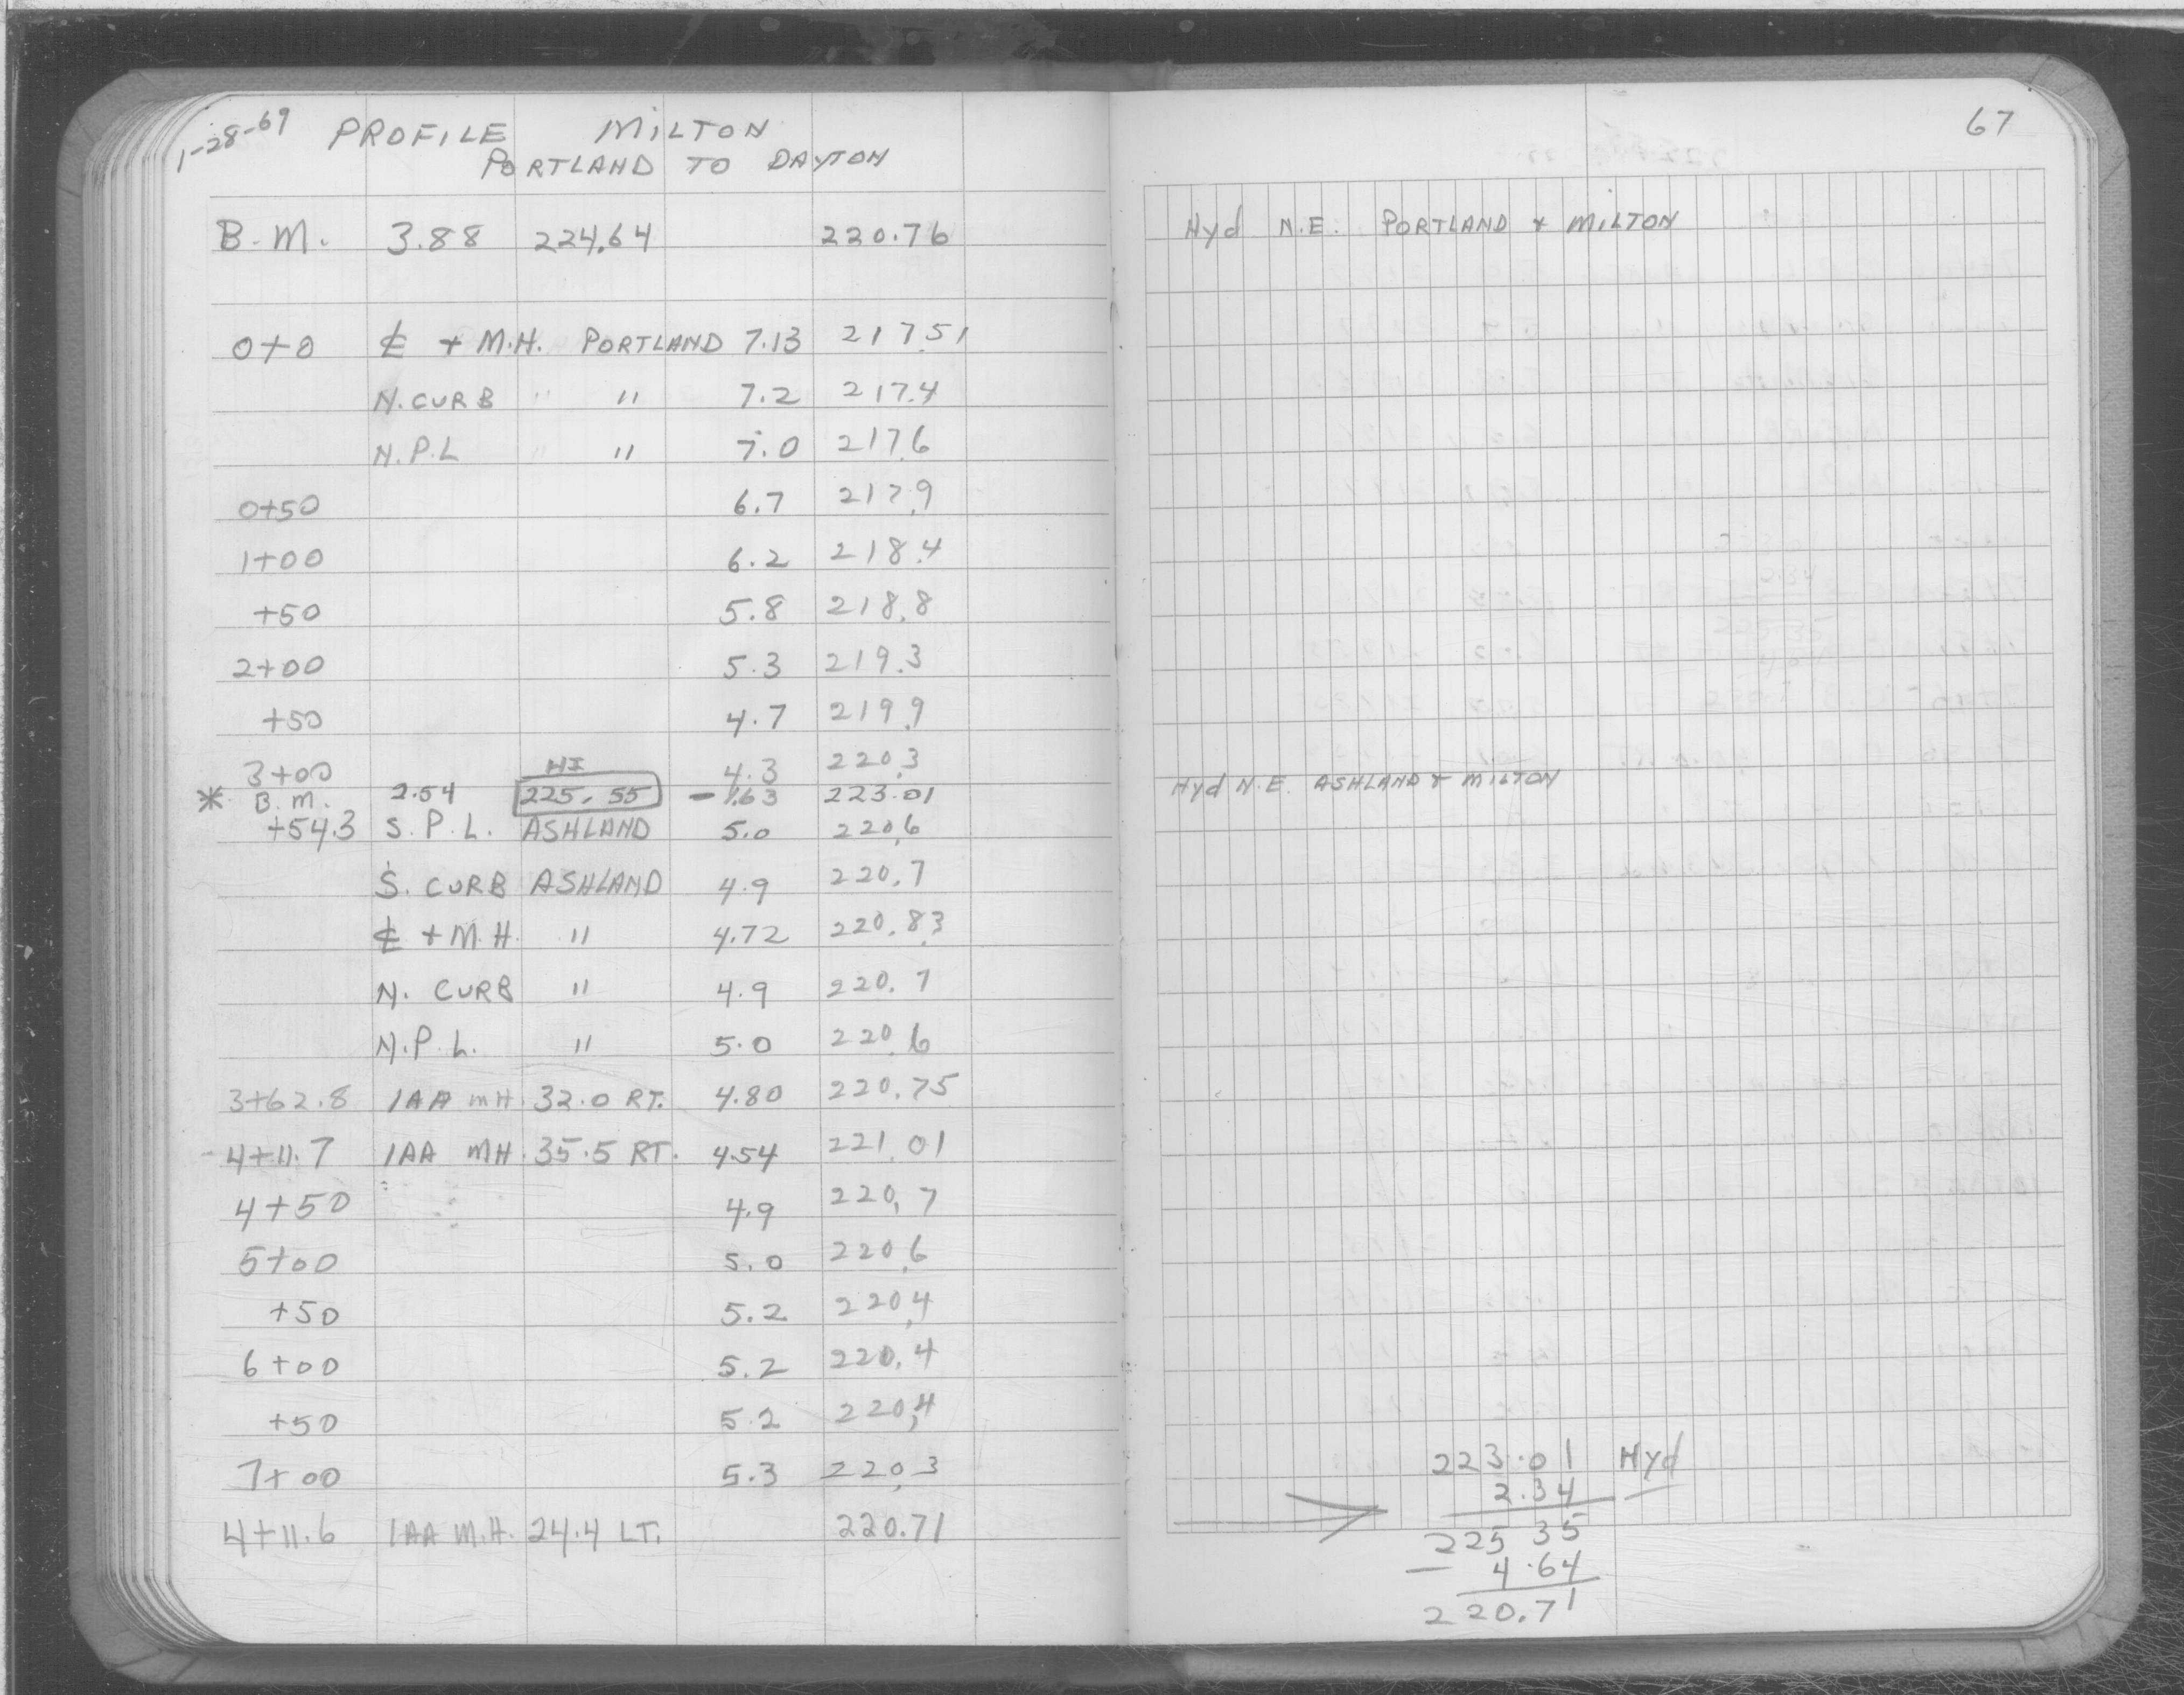 1-28-69 PROFILE MILTON
PORTLAND TO DAYTON
B.M. 3.88 224.64 220.76
0+0 ℄ + M.H. PORTLAND 7.13 217.51
N. CURB " " 7.2 217.4
N.P.L " " 7.0 217.6
0+50 6.7 217.9
1+00 6.2 218.4
+50 5.8 218.8
2+00 5.3 219.3
+50 4.7 219.9
3+00 4.3 220.3
HI
* B.M. 2.54 225.55 -1.63 223.01
+54.3 S.P.L. ASHLAND 5.0 220.6
S. CURB ASHLAND 4.9 220.7
℄ + M.H. " 4.72 220.83
N. CURB " 4.9 220.7
N.P.L. " 5.0 220.6
3+62.8 1AA MH. 32.0 RT. 4.80 220.75
4+11.7 1AA MH. 35.5 RT. 4.54 221.01
4+50 4.9 220.7
5+00 5.0 220.6
+50 5.2 220.4
6+00 5.2 220.4
+50 5.2 220.4
7+00 5.3 220.3
4+11.6 1AA M.H. 24.4 LT. 220.71
67
Hyd N.E. PORTLAND + MILTON
Hyd N.E. ASHLAND + MILTON
223.01 Hyd
2.34
225 35
- 4.64
220.71